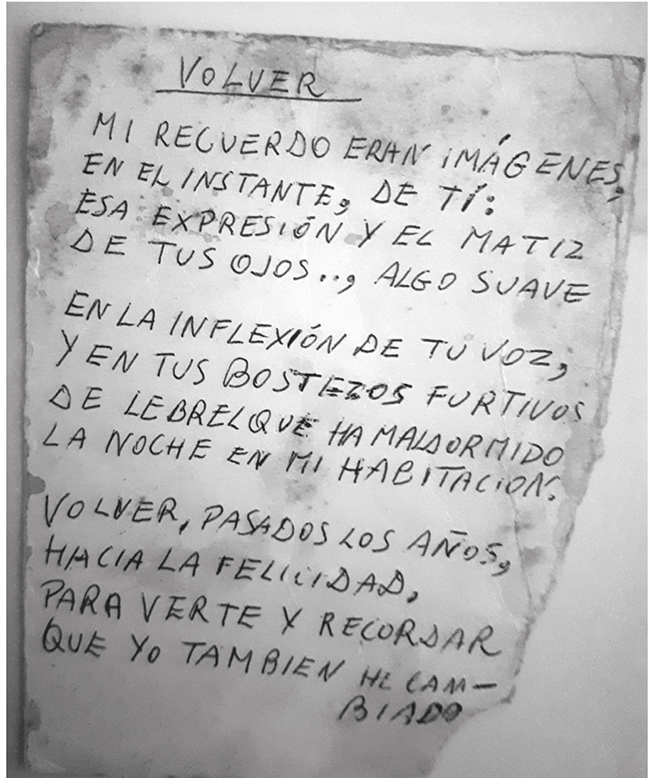 VOLVER
MI RECUERDO ERAN IMÁGENES,
EN EL INSTANTE, DE TÍ:
ESA EXPRESIÓN Y EL MATIZ
DE TUS OJOS.., ALGO SUAVE
EN LA INFLEXIÓN DE TU VOZ,
Y EN TUS BOSTEZOS FURTIVOS
DE LEBREL QUE HA MALDORMIDO
LA NOCHE EN MI HABITACION.
VOLVER, PASADOS LOS AÑOS,
HACIA LA FELICIDAD,
PARA VERTE Y RECORDAR
QUE YO TAMBIEN HE CAM-
BIADO